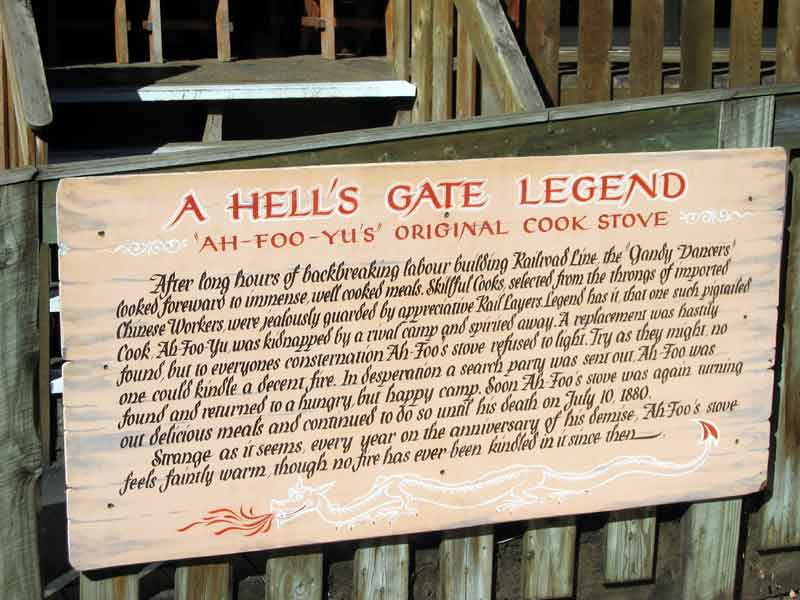 A HELL'S GATE LEGEND
'AH-FOO-YU'S' ORIGINAL COOK STOVE
After long hours of backbreaking labour building Railroad Line, the "Gandy Dancers"
looked foreward to immense, well cooked meals. Skillful Cooks, selected from the throngs of imported
Chinese Workers, were jealously guarded by appreciative Rail Layers. Legend has it, that one such pigtailed
Cook, Ah-Foo-Yu, was kidnapped by a rival camp and spirited away. A replacement was hastily
found, but to everyones consternation Ah-Foo's stove refused to light. Try as they might, no
one could kindle a decent fire. In desperation a search party was sent out. Ah-Foo was
found and returned to a hungry, but happy camp. Soon Ah-Foo's stove was again turning
out delicious meals and continued to do so until his death on July 10, 1880.
Strange as it seems, every year on the anniversary of his demise, Ah-Foo's stove
feels faintly warm, though no fire has ever been kindled in it since then.